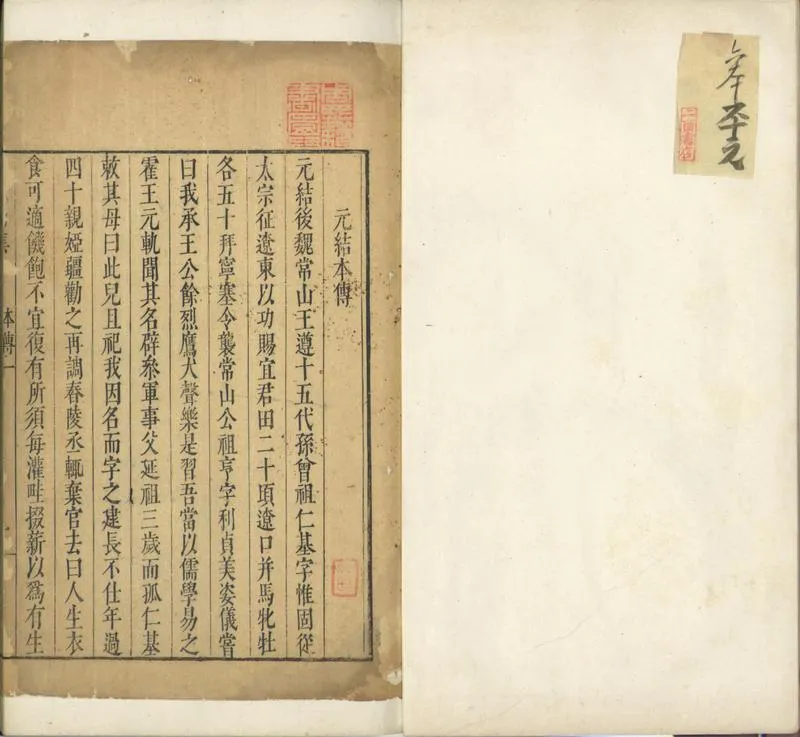 六本
元結本傳
元結後魏常山王遵十五代孫曾祖仁基字惟固從
太宗征遼東以功賜宜君田二十頃遼口并馬牝牡
各五十拜寧塞令襲常山公祖亨字利貞美姿儀嘗
曰我承王公餘烈鷹犬聲樂是習吾當以儒學易之
霍王元軌聞其名辟叅軍事父延祖三歲而孤仁基
敕其母曰此兒且祀我因名而字之逮長不仕年過
四十親婭疆勸之再調舂陵丞輒棄官去曰人生衣
食可適饑飽不宜復有所須每灌畦掇薪以爲有生
本傳 一